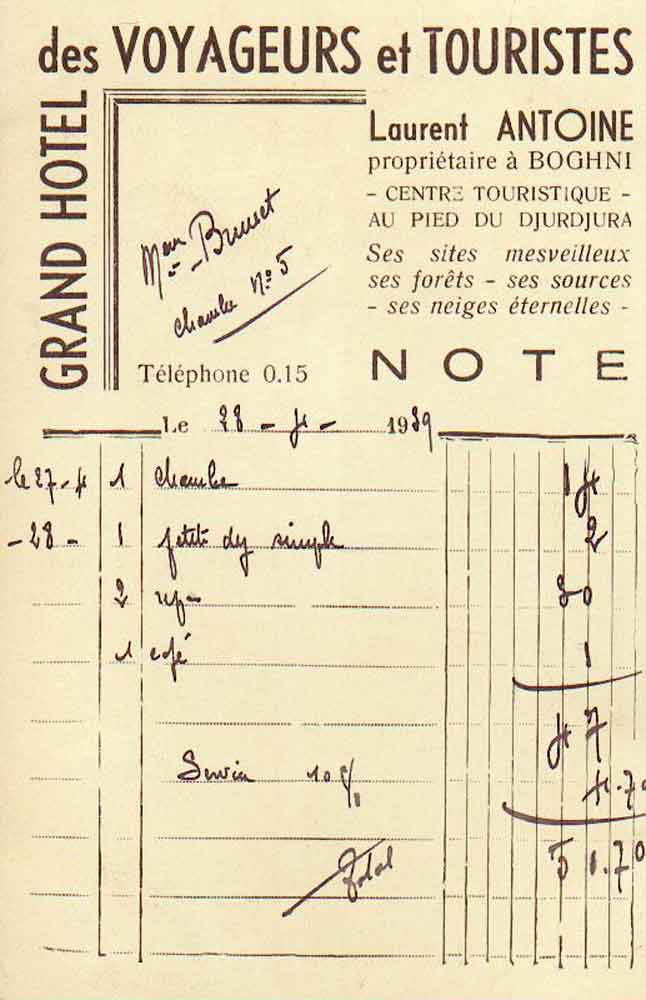 GRAND HOTEL
des VOYAGEURS et TOURISTES
Laurent ANTOINE
propriétaire à BOGHNI
- CENTRE TOURISTIQUE -
AU PIED DU DJURDJURA
Ses sites mesveilleux
ses forêts - ses sources
- ses neiges éternelles -
chambre N° 5
Téléphone 0.15
NOTE
Le 28 - 4 - 1939
le 27-4 1 chambre 14
-28- 1 petit dej simple 2
2 repas 30
1 café 1
47
Service 10 % 4.70
Total 51.70